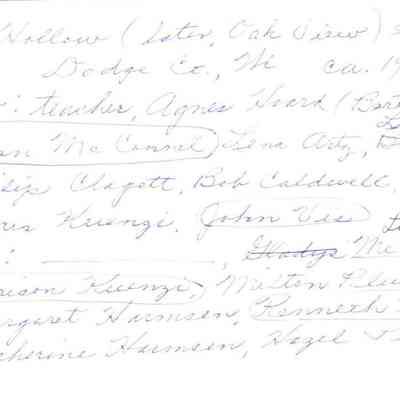 Hollow (later, Oak View) S
Dodge Co., Wi ca. 19
: teacher, Agnes Hoard (Bar
an McConnel) Lena Artz,
ip Clagett, Bob Caldwell,
Kuenzi. John Vis
: ________, Gladys Mc
rison Kuenzi, Milton
rgaret Harmsen, Kenneth
therine Harmsen, Hazel